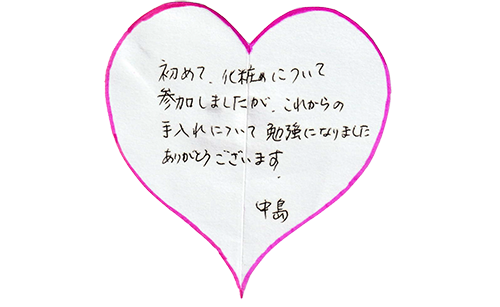 初めて、化粧めについて
参加しましたが、これからの
手入れについて勉強になりました
ありがとうございます.
中島